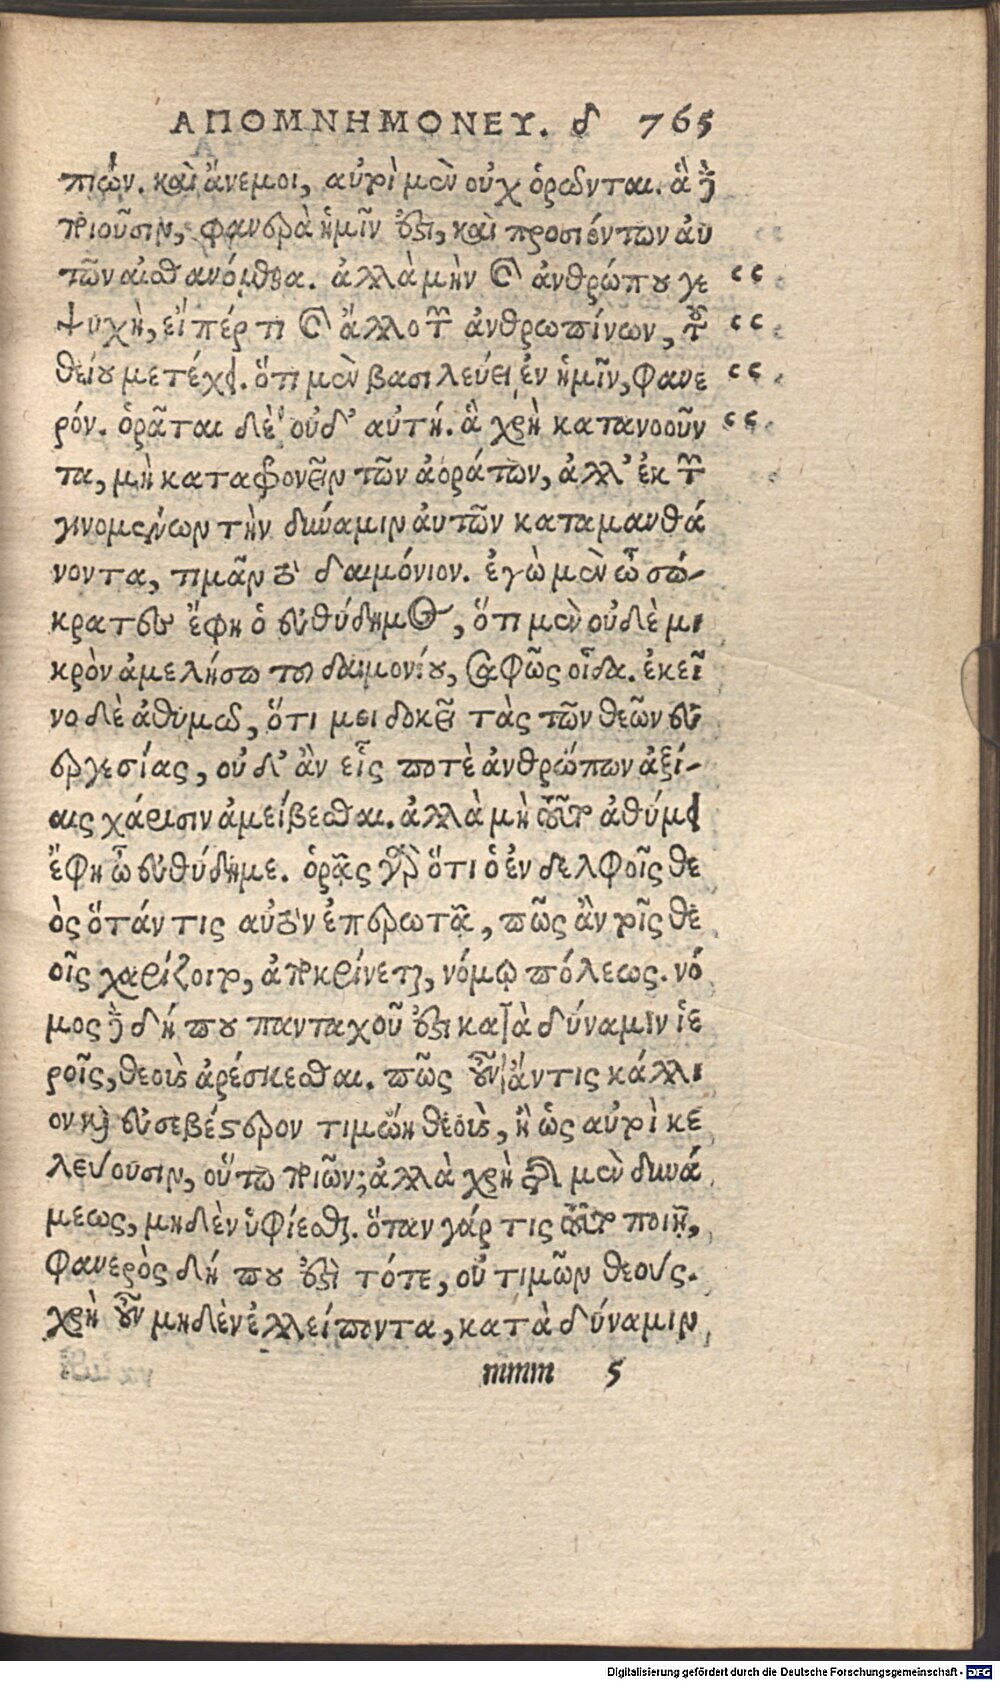 ΑΠΟΜΝΗΜΟΝΕΥ. δ 765
πιών. καὶ ἄνεμοι, αὐτοὶ μὲν οὐχ ὁρῶνται. ἃ δὲ
ποιοῦσιν, φανερὰ ἡμῖν ἐστι, καὶ προσιόντων αὐ
τῶν αἰσθανόμεθα. ἀλλὰ μὴν καὶ ἀνθρώπου γε
ψυχὴ, εἴπέρ τι καὶ ἄλλο τῶν ἀνθρωπίνων, τοῦ
θείου μετέχει. ὅτι μὲν βασιλεύει ἐν ἡμῖν, φανε
ρόν. ὁρᾶται δὲ οὐδ' αὐτή. ἃ χρὴ κατανοοῦν
τα, μὴ καταφρονεῖν τῶν ἀοράτων, ἀλλ' ἐκ τῶν
γινομένων τὴν δύναμιν αὐτῶν καταμανθά
νοντα, τιμᾶν τὸ δαιμόνιον. ἐγὼ μὲν ὦ σώ-
κρατες ἔφη ὁ εὐθύδημος, ὅτι μὲν οὐδὲ μι
κρὸν ἀμελήσω τοῦ δαιμονίου, σαφῶς οἶδα. ἐκεῖ
νο δὲ ἀθυμῶ, ὅτι μοι δοκεῖ τὰς τῶν θεῶν εὐ
εργεσίας, οὐδ' ἂν εἷς ποτὲ ἀνθρώπων ἀξί-
αις χάρισιν ἀμείβεσθαι. ἀλλὰ μὴ τοῦτο ἀθύμει
ἔφη ὦ εὐθύδημε. ὁρᾷς γὰρ ὅτι ὁ ἐν δελφοῖς θε
ὸς ὅτάν τις αὐτὸν ἐπερωτᾷ, πῶς ἂν τοῖς θε
οῖς χαρίζοιτο, ἀποκρίνεται, νόμῳ πόλεως. νό
μος δὲ δή που πανταχοῦ ἐστι κατὰ δύναμιν ἱε
ροῖς, θεοὺς ἀρέσκεσθαι. πῶς οὖν ἄν τις κάλλι
ον καὶ εὐσεβέστερον τιμῴη θεοὺς, ἢ ὡς αὐτοὶ κε
λεύουσιν, οὕτω ποιῶν; ἀλλὰ χρὴ τῆς μὲν δυνά
μεως, μηδὲν ὑφίεσθαι. ὅταν γάρ τις τοῦτο ποιῇ,
φανερὸς δή που ἐστὶ τότε, οὐ τιμῶν θεούς.
χρὴ οὖν μηδὲν ἐλλείποντα, κατὰ δύναμιν
mmm 5
Digitalisierung gefördert durch die Deutsche Forschungsgemeinschaft - DFG